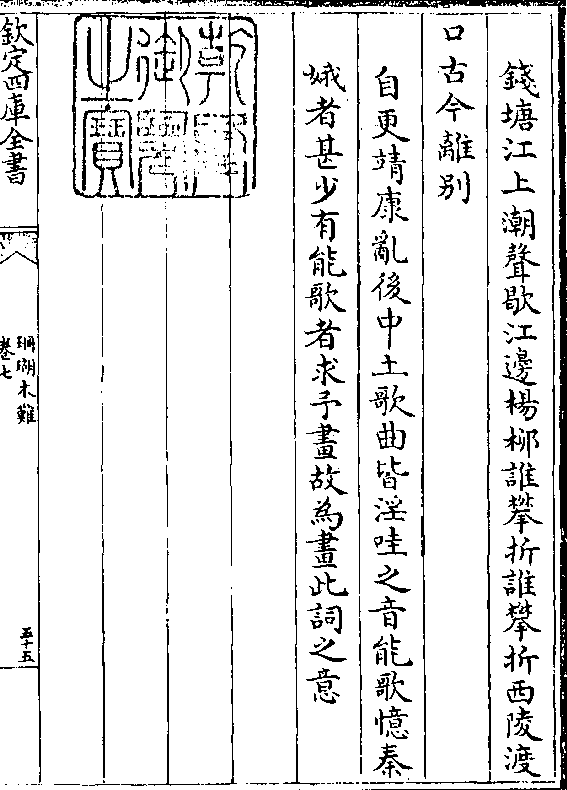 錢塘江上潮聲歇江邊楊桞誰攀折誰攀折西陵渡
口古今離别
自更靖康亂後中土歌曲皆淫哇之音能歌憶秦
娥者甚少有能歌者求予畫故為畫此詞之意
乾隆御覽之寶
欽定四庫全書
珊瑚木難
卷七
五十五